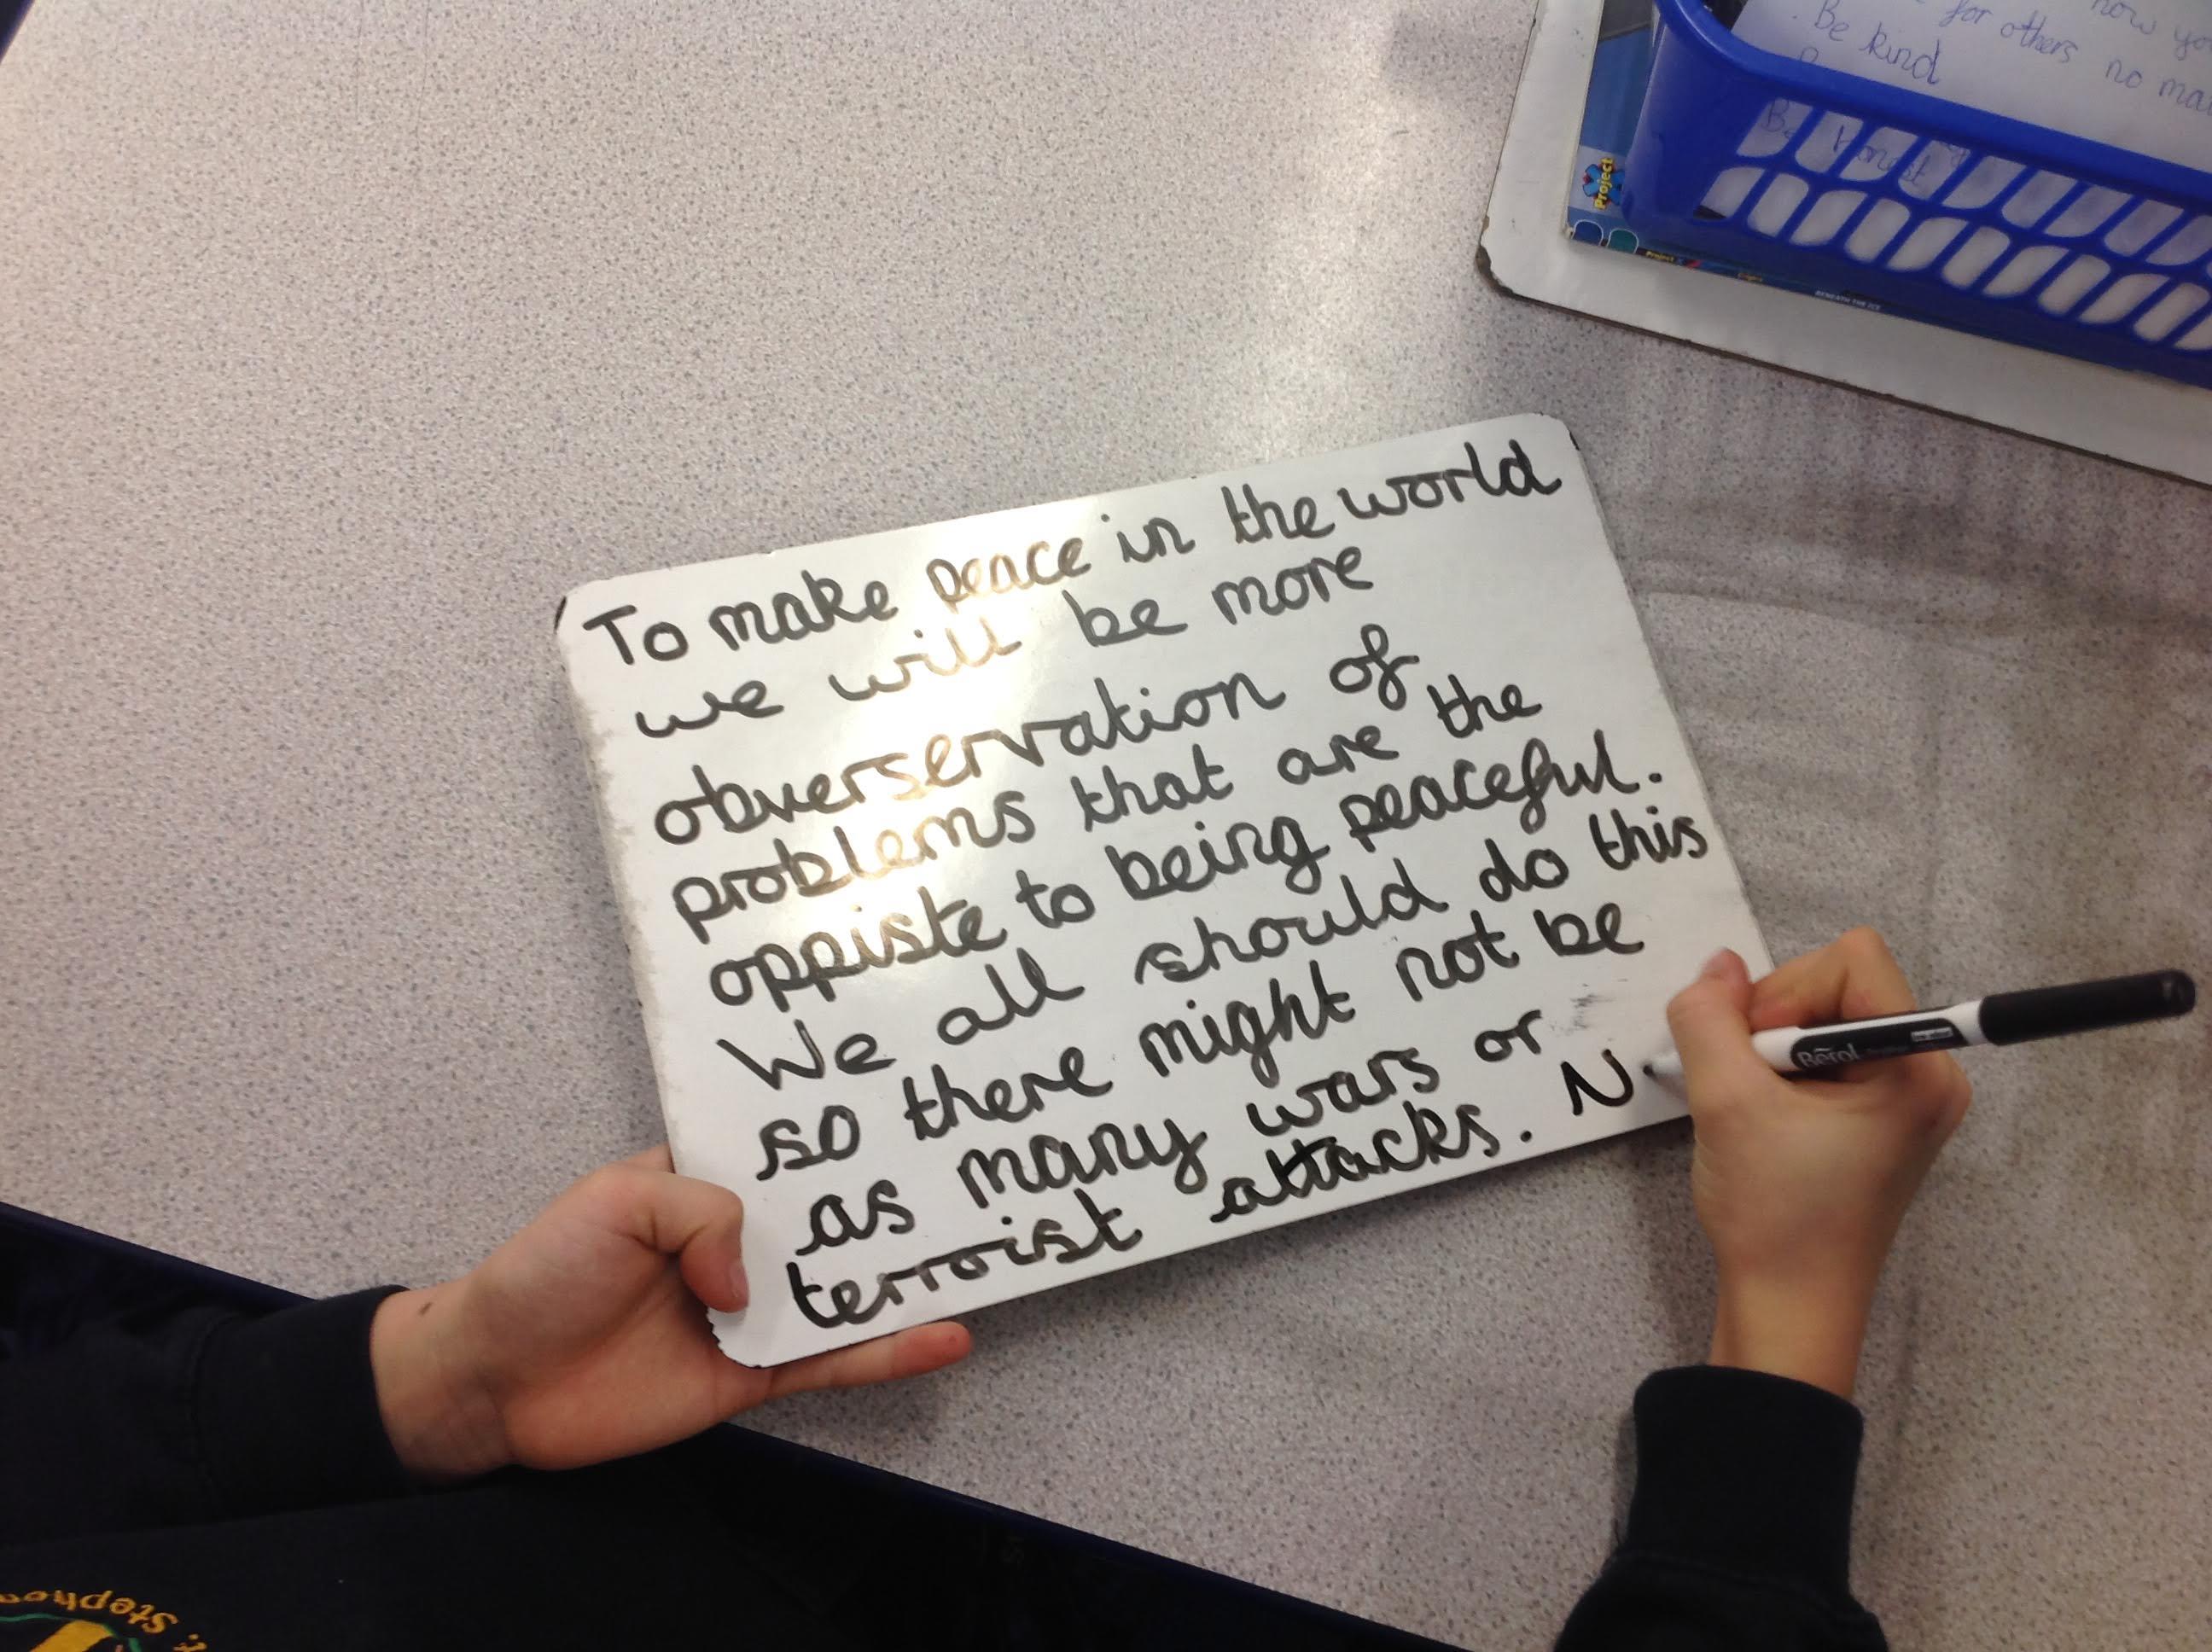 To make peace in the world
we will be more
obverservation of
problems that are the
oppiste to being peaceful.
We all should do this
so there might not be
as many wars or
terroist attacks. N.
how you
for others no ma
Be kind
Be Honest
Project
BENEATH THE ICE
Berol
Stephen